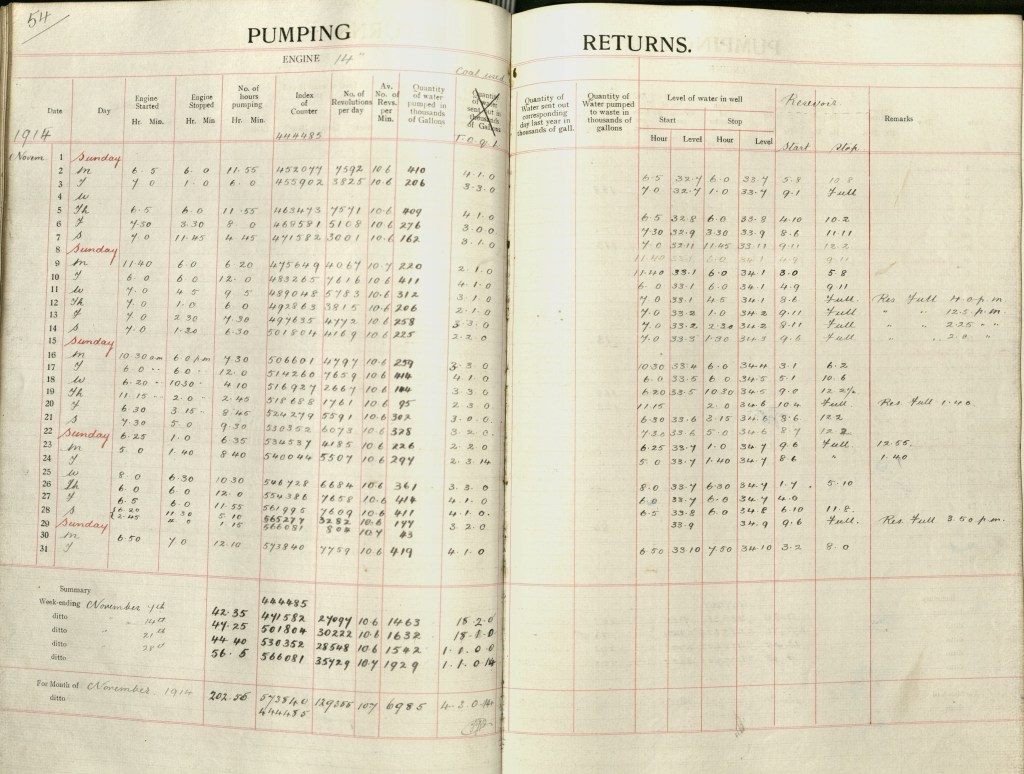 54
PUMPING RETURNS.
ENGINE 14"
Coal used
Date Day Engine Started Hr. Min. Engine Stopped Hr. Min No. of hours pumping Index of Counter No. of Revolutions per day Av. No. of Revs. per Min. Quantity of water pumped in thousands of Gallons Quantity of water sent out in thousands of Gallons
Quantity of Water sent out corresponding day last year in thousands of gall. Quantity of Water pumped to waste in thousands of gallons Level of water in well Start Hour Level Stop Hour Level Reservoir Start Stop Remarks
1914 444485 T-C q.l
Novem. 1 Sunday
2 M 6.5 6.0 11.55 452077 7592 10.6 410 4.1.0 6.5 32.7 6.0 33.7 5.8 10.8
3 T 7.0 1.0 6.0 455902 3825 10.6 206 3.3.0 7.0 32.7 1.0 33.7 9.1 Full
4 W
5 Th 6.5 6.0 11.55 463473 7571 10.6 409 4.1.0 6.5 32.8 6.0 33.8 4.10 10.2
6 F 7.30 3.30 8.0 468581 5108 10.6 276 3.0.0 7.30 33.9 3.30 33.9 8.6 11.11
7 S 7.0 11.45 4.45 471582 3001 10.6 162 3.1.0 7.0 32.11 11.45 33.11 9.11 12.2
8 Sunday
9 M 11.40 6.0 6.20 475649 4067 10.7 220 2.1.0 11.40 33.1 6.0 34.1 3.0 5.8
10 T 6.0 6.0 12.0 483265 7616 10.6 411 4.1.0 6.0 33.1 6.0 34.1 4.9 9.11
11 W 7.0 4.5 9.5 489048 5783 10.6 312 3.1.0 7.0 33.1 4.5 34.1 8.6 Full Res. Full 4.0 p.m
12 Th 7.0 1.0 6.0 492863 3815 10.6 206 2.1.0 7.0 33.2 1.0 34.2 9.11 Full " " 12.5 p.m
13 F 7.0 2.30 7.30 497635 4772 10.6 258 3.3.0 7.0 33.2 2.30 34.2 8.11 Full " " 2.25 " "
14 S 7.0 1.30 6.30 501804 4169 10.6 225 2.2.0 7.0 33.3 1.30 34.3 9.6 Full " " 2.0 " "
15 Sunday
16 M 10.30 am 6.0 p.m 7.30 506601 4797 10.6 259 3.3.0 10.30 33.4 6.0 34.4 3.1 6.2
17 T 6.0 " 6.0 " 12.0 514260 7659 10.6 414 4.1.0 6.0 33.5 6.0 34.5 5.1 10.6
18 W 6.20 " 10.30 " 4.10 516927 2667 10.6 144 3.3.0 6.20 33.5 10.30 34.5 9.0
19 Th 11.15 " 2.0 " 2.45 518688 1761 10.6 95 2.3.0 11.15 2.0 34.6 10.4 Full Res. Full 1.40
20 F 6.30 3.15 " 8.45 524279 5591 10.6 302 3.0.0 6.30 33.6 3.15 34.6 8.6 12.2
21 S 7.30 5.0 9.30 530352 6073 10.6 328 3.2.0 7.30 33.6 5.0 34.6 8.7 12.2
22 Sunday
23 M 6.25 1.0 6.35 534537 4185 10.6 226 2.2.0 6.25 33.7 1.0 34.7 9.6 Full 12.55
24 T 5.0 1.40 8.40 540044 5507 10.6 297 2.3.14 5.0 33.7 1.40 34.7 8.6 " 1.40
25 W 8.0 6.30 10.30 546728 6684 10.6 361 3.3.0 8.0 33.7 6.30 34.7 1.7 5.10
26 Th 6.0 6.0 12.0 554386 7658 10.6 414 4.1.0 6.0 33.7 6.0 34.7 4.0
27 F 6.5 6.0 11.55 561995 7609 10.6 411 4.1.0 6.5 33.8 6.0 34.8 6.10 11.8
28 S 6.20 11.30 5.10 565277 3282 10.6 177 3.2.0 33.9 34.9 9.6 Full. Res. Full 3.50 p.m.
2.45 4.0 1.15 566081 804 10.7 43
29 Sunday
30 M 6.50 7.0 12.10 573840 7759 10.6 419 4.1.0 6.50 33.10 7.50 34.10 3.2 8.0
31 T
Summary 444485
Week-ending November 7th 42.35 471582 27097 10.6 1463 18.2.0
ditto " 14th 47.25 501804 30222 10.6 1632 18.1.0
ditto " 21st 44.40 530352 28548 10.6 1542 1.1.0.0
ditto " 28th 56.5 566081 35729 10.7 1929 1.1.0.14
ditto
For Month of November 1914 202.56 573840 129355 10.7 6985 4.3.0.14
ditto 444485